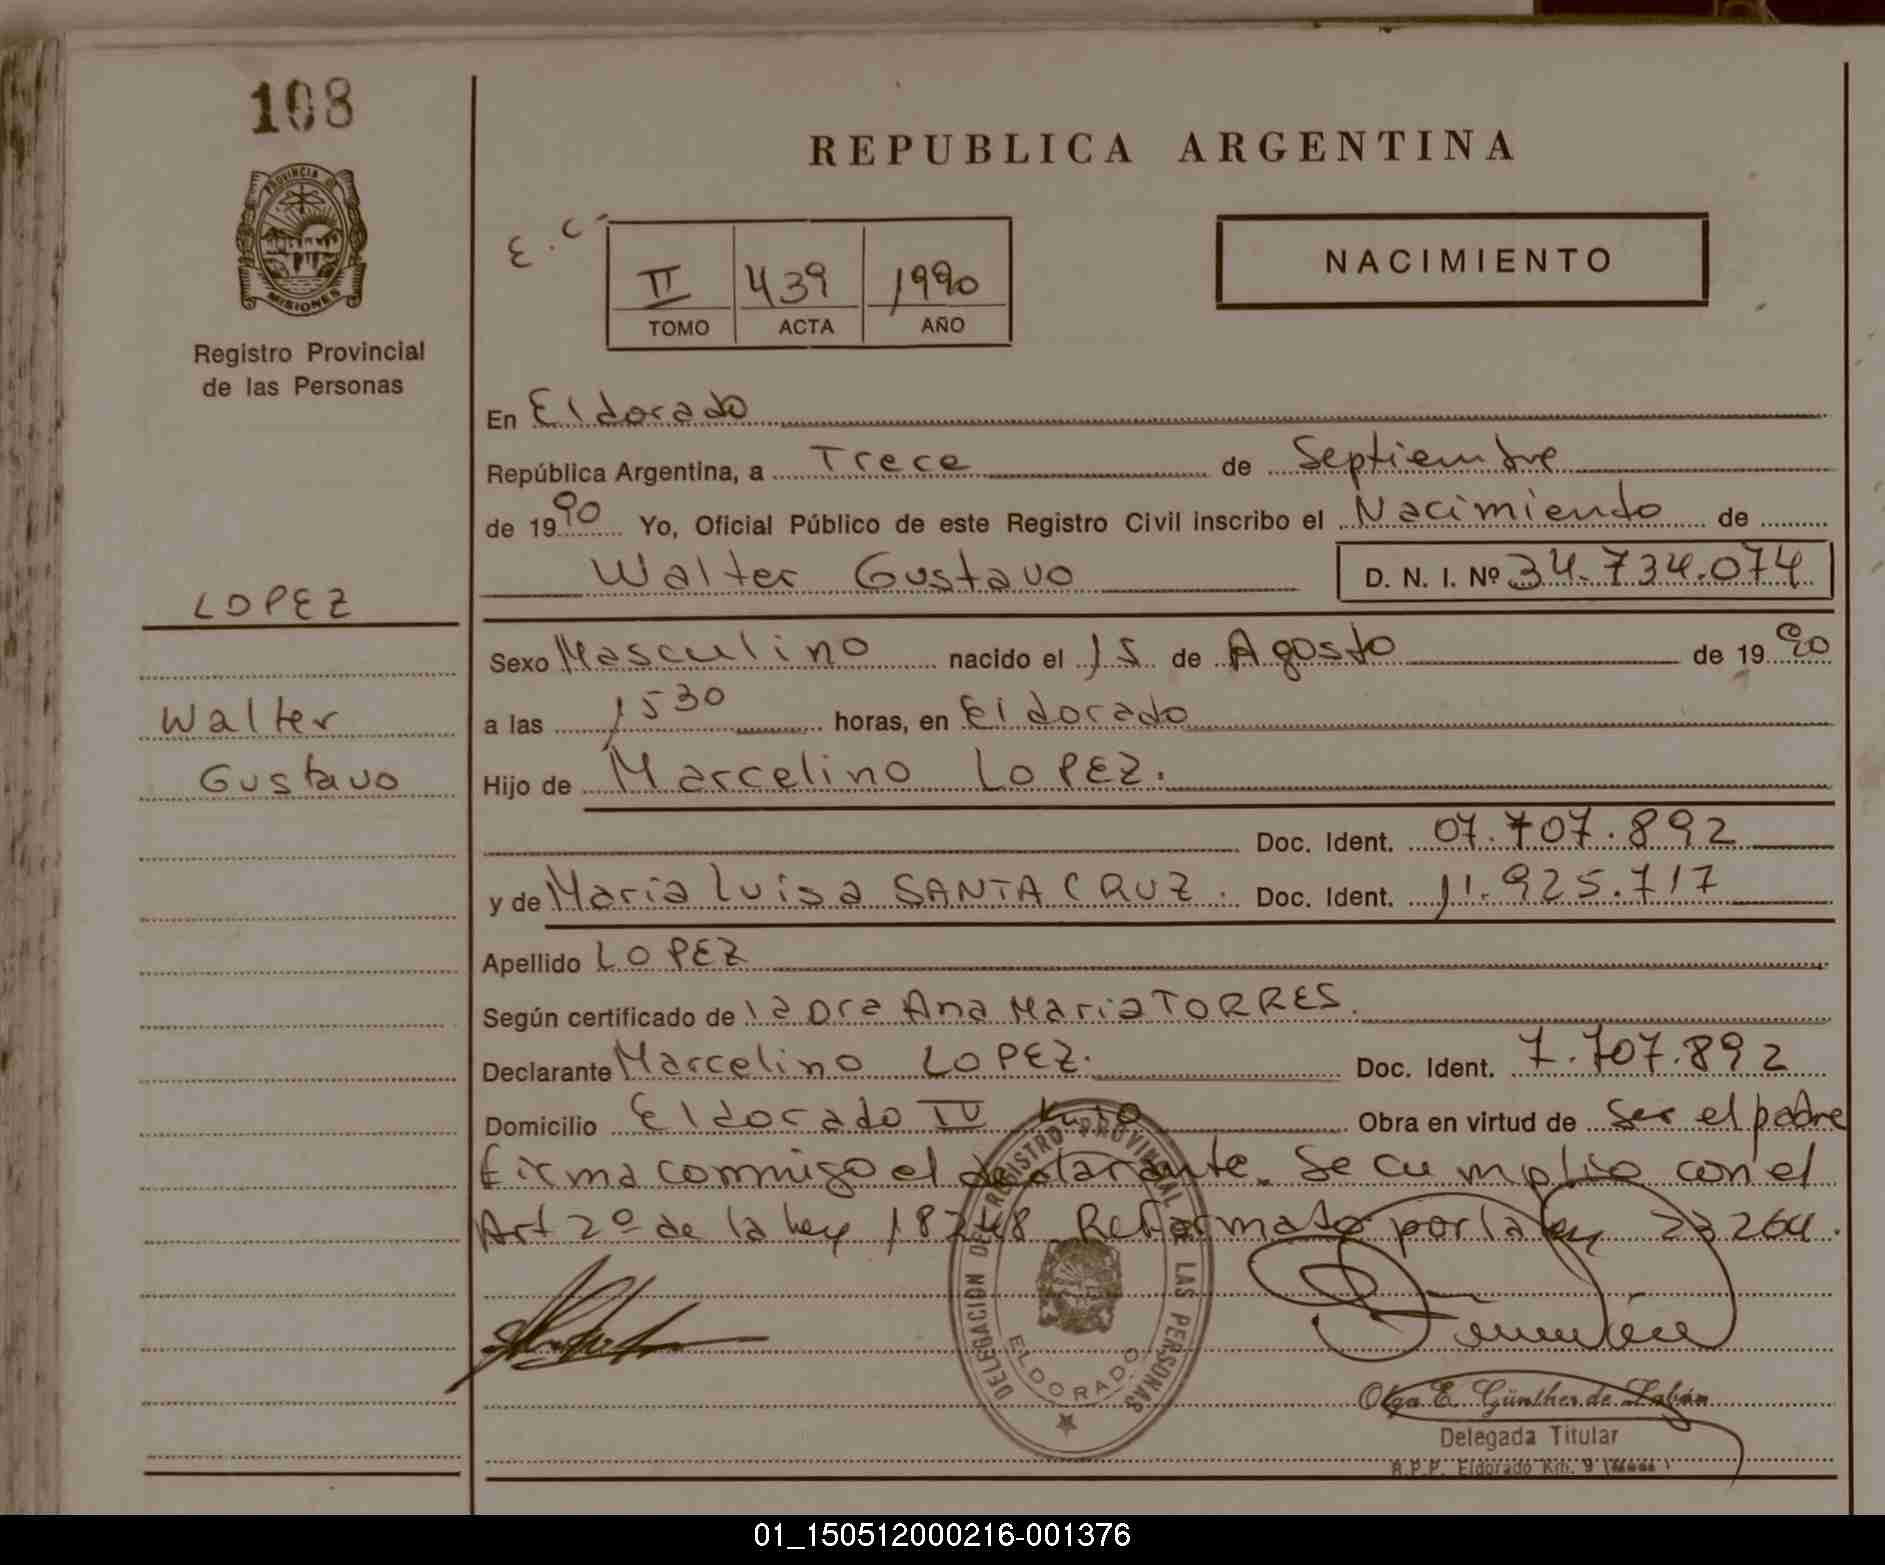 108
PROVINCIA DE
MISIONES
Registro Provincial
de las Personas
LOPEZ
Walter
Gustavo
REPUBLICA ARGENTINA
E.C.
II 439 1990
TOMO ACTA AÑO
NACIMIENTO
En Eldorado
República Argentina, a Trece de Septiembre
de 1990 Yo, Oficial Público de este Registro Civil inscribo el Nacimiento de
Walter Gustavo D. N. I. Nº 34.734.074
Sexo Masculino nacido el 15 de Agosto de 1990
a las 1530 horas, en Eldorado
Hijo de Marcelino LOPEZ.
Doc. Ident. 07.707.892
y de Maria Luisa SANTA CRUZ. Doc. Ident. 11.925.717
Apellido LOPEZ
Según certificado de la Dra Ana Maria TORRES.
Declarante Marcelino LOPEZ. Doc. Ident. 7.707.892
Domicilio Eldorado IV Obra en virtud de Ser el padre
Firma conmigo el declarante. Se cumplio con el
Art 2º de la ley 18248 Reformado por la ley 23264.
DELEGACION DEL REGISTRO PROVINCIAL DE LAS PERSONAS
ELDORADO
Olga E. Günther de Labán
Delegada Titular
R.P.P. Eldorado Km. 9
01_150512000216-001376